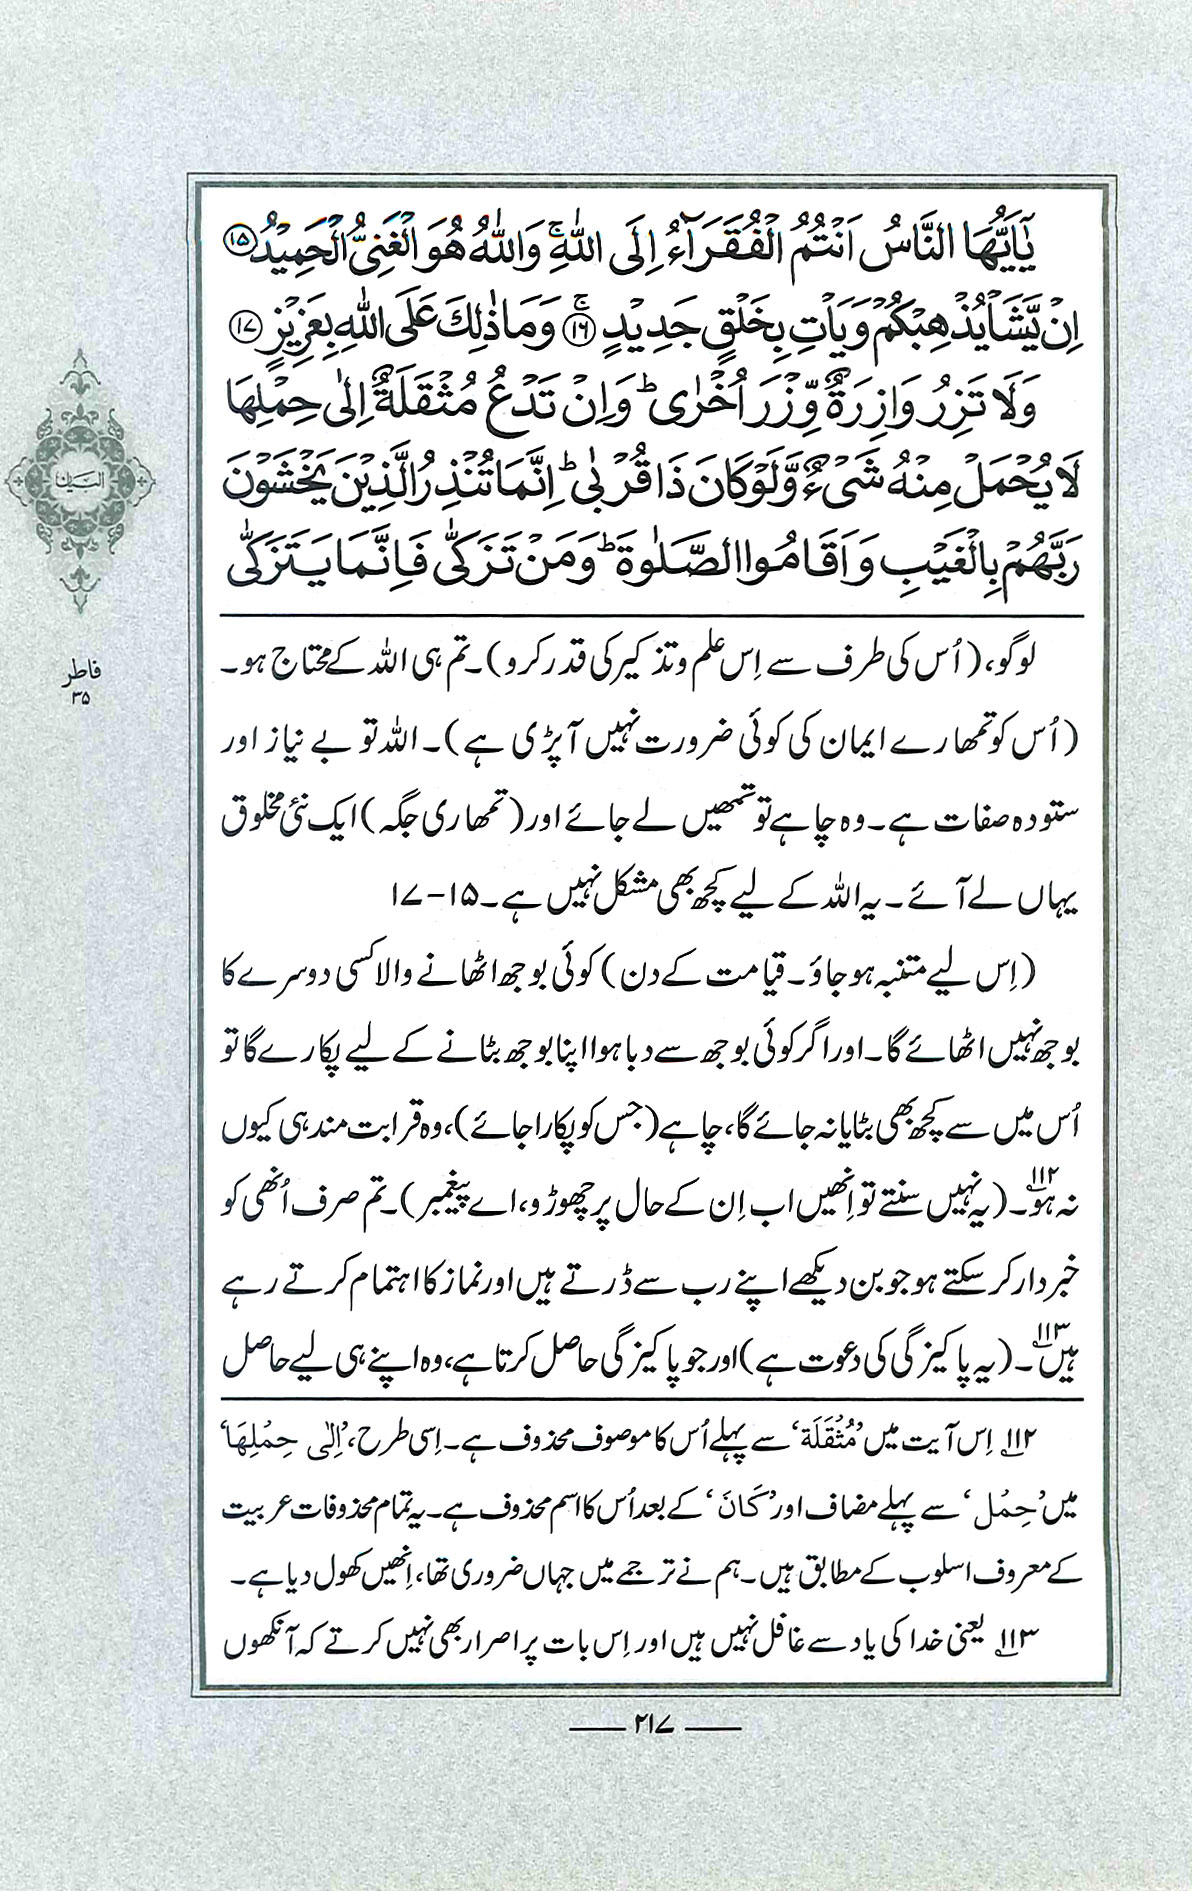 يٰٓاَيُّهَا النَّاسُ اَنْتُمُ الْفُقَرَآءُ اِلَى اللّٰهِ ۚ وَاللّٰهُ هُوَ الْغَنِىُّ الْحَمِيْدُ ﴿۱۵﴾
اِنْ يَّشَاْ يُذْهِبْكُمْ وَيَاْتِ بِخَلْقٍ جَدِيْدٍ ﴿۱۶﴾ ۚ وَمَا ذٰلِكَ عَلَى اللّٰهِ بِعَزِيْزٍ ﴿۱۷﴾
وَلَا تَزِرُ وَازِرَةٌ وِّزْرَ اُخْرٰى ؕ وَاِنْ تَدْعُ مُثْقَلَةٌ اِلٰى حِمْلِهَا
لَا يُحْمَلْ مِنْهُ شَىْءٌ وَّلَوْ كَانَ ذَا قُرْبٰى ؕ اِنَّمَا تُنْذِرُ الَّذِيْنَ يَخْشَوْنَ
رَبَّهُمْ بِالْغَيْبِ وَاَقَامُوا الصَّلٰوةَ ؕ وَمَنْ تَزَكّٰى فَاِنَّمَا يَتَزَكّٰى
البیان
فاطر
۳۵
لوگو، (اُس کی طرف سے اِس علم و تذکیر کی قدر کرو)۔ تم ہی اللہ کے محتاج ہو۔
(اُس کو تمھارے ایمان کی کوئی ضرورت نہیں آپڑی ہے)۔ اللہ تو بے نیاز اور
ستودہ صفات ہے۔ وہ چاہے تو تمھیں لے جائے اور (تمھاری جگہ) ایک نئی مخلوق
یہاں لے آئے۔ یہ اللہ کے لیے کچھ بھی مشکل نہیں ہے۔ ۱۵-۱۷
(اِس لیے متنبہ ہو جاؤ۔ قیامت کے دن) کوئی بوجھ اٹھانے والا کسی دوسرے کا
بوجھ نہیں اٹھائے گا۔ اور اگر کوئی بوجھ سے دبا ہوا اپنا بوجھ بٹانے کے لیے پکارے گا تو
اُس میں سے کچھ بھی بٹایا نہ جائے گا، چاہے (جس کو پکارا جائے)، وہ قرابت مند ہی کیوں
نہ ہو۱۱۲۔ (یہ نہیں سنتے تو اِنھیں اب اِن کے حال پر چھوڑو، اے پیغمبر)۔ تم صرف اُنھی کو
خبردار کر سکتے ہو جو بن دیکھے اپنے رب سے ڈرتے ہیں اور نماز کا اہتمام کرتے رہے
ہیں۱۱۳۔ (یہ پاکیزگی کی دعوت ہے) اور جو پاکیزگی حاصل کرتا ہے، وہ اپنے ہی لیے حاصل
۱۱۲ اِس آیت میں ’مُثْقَلَة‘ سے پہلے اُس کا موصوف محذوف ہے۔ اِسی طرح، ’اِلٰى حِمْلِهَا‘
میں ’حِمْل‘ سے پہلے مضاف اور ’كَانَ‘ کے بعد اُس کا اسم محذوف ہے۔ یہ تمام محذوفات عربیت
کے معروف اسلوب کے مطابق ہیں۔ ہم نے ترجمے میں جہاں ضروری تھا، اِنھیں کھول دیا ہے۔
۱۱۳ یعنی خدا کی یاد سے غافل نہیں ہیں اور اِس بات پر اصرار بھی نہیں کرتے کہ آنکھوں
۲۱۷